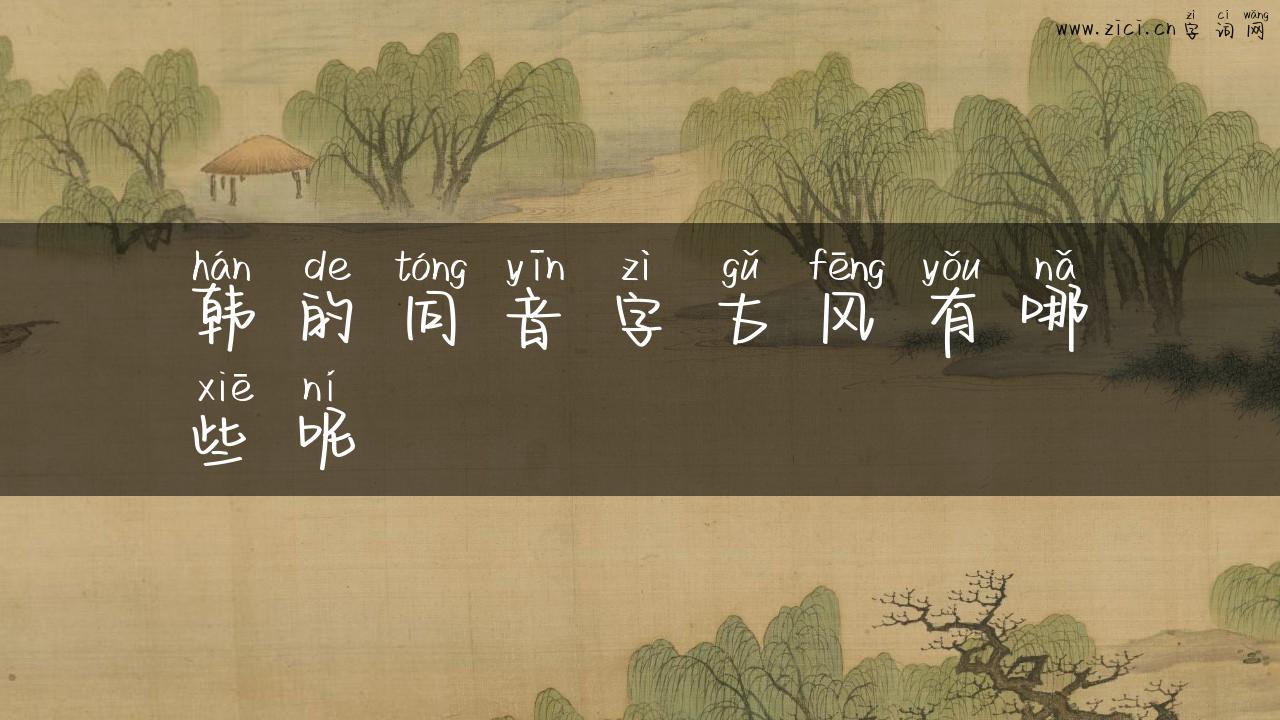 zì cí wǎng
www.zici.cn 字 词 网
hán de tóng yīn zì gǔ fēng yǒu nǎ
韩 的 同 音 字 古 风 有 哪
xiē ní
些 呢